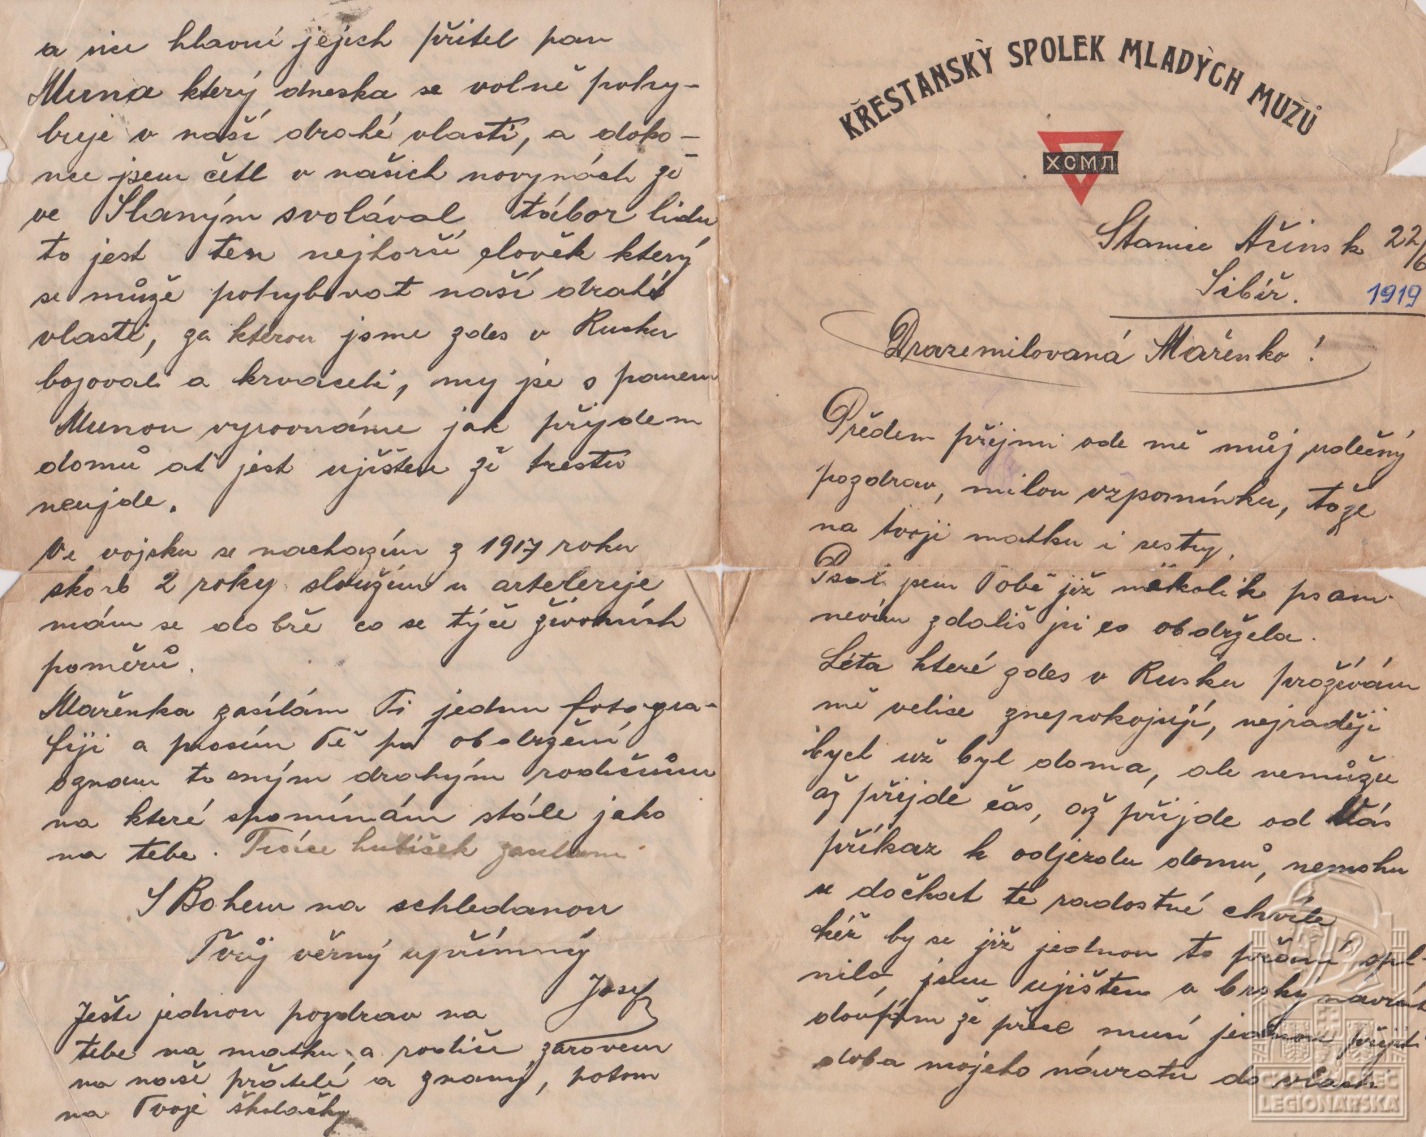 KŘESTANSKÝ SPOLEK MLADÝCH MUZŮ
ХСМЛ
Stanice Ačinsk 22/6
Sibíř. 1919
Drazemilovaná Mařenko!
Předem přijmi ode mě můj vděčný
pozdrav, milou vzpomínku, tóže
na tvoji matku i sestry.
Psal jsem Tobě již několik psam
nevím zdališ jsi co obdržela.
Léta které zdes v Rusku prožívám
mě velice znepokojují, nejraději
bych už byl doma, ale nemůžu
až přijde čas, až přijde od Vás
příkaz k odjezdu domů, nemohu
se dočkat té radostné chvíle
kéž by se již jednou to přání spl-
nilo, jsem ujištěn v brsky návrat
doufám že přece musí jednou přijít
doba mojeho návratu do vlasti
a sice hlavní jejich přítel pan
Muna který dneska se volně pohy-
buje v naší drahé vlasti, a doko-
nce jsem četl v našich novynách že
ve Slaným svolával tábor lidu
to jest ten nejhorší člověk který
se může pohybovat naší drahé
vlasti, za kterou jsme zdes v Rusku
bojovali a krvaceli, my je s panem
Munou vyrovnáme jak přijdem
domů ať jest ujištěn že trestu
neujde.
Ve vojsku se nachazím z 1917 roku
skorb 2 roky sloužím u artelerije
mám se dobře co se týče životních
poměrů.
Mařenka zasílám Ti jednu fotogra-
fiji a prosím Tě po obdržení
oznam to mým drahým rodičům
na které spomínám stále jako
na tebe. Tisíce hubiček zasilam
S Bohem na schledanou
Tvůj věrný upřímný
Josef
Ještě jednou pozdrav na
tebe na matku a rodiče zarovem
na naše přátelé a znamý, potom
na Tvoje školačky
ČS OBEC
LEGIONÁŘSKÁ